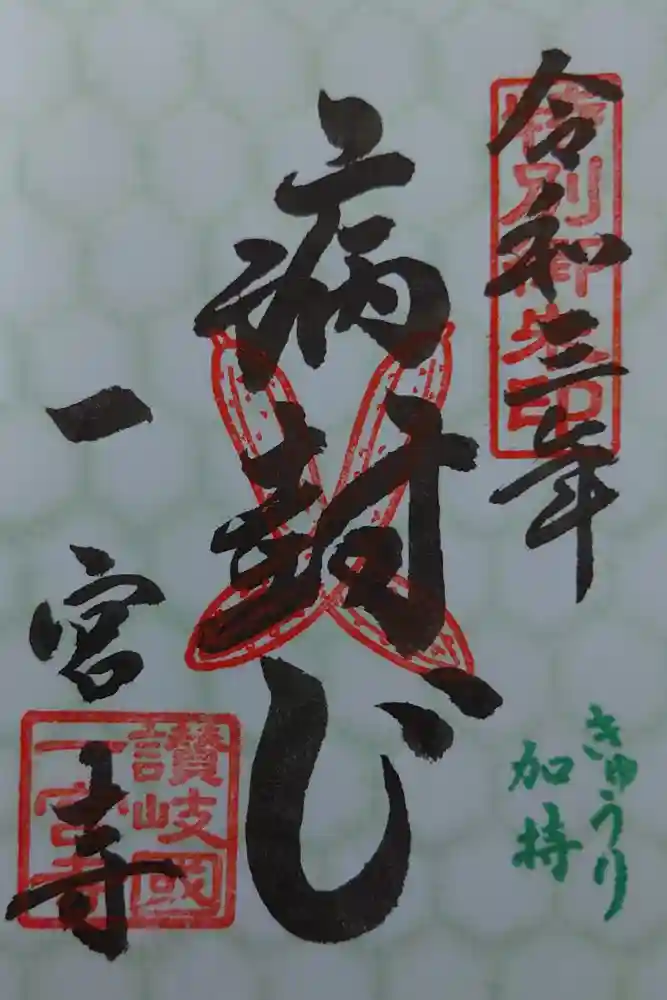 令和三年
特別御朱印
病封じ
きゅうり
加持
一宮寺
讃岐國
一宮寺